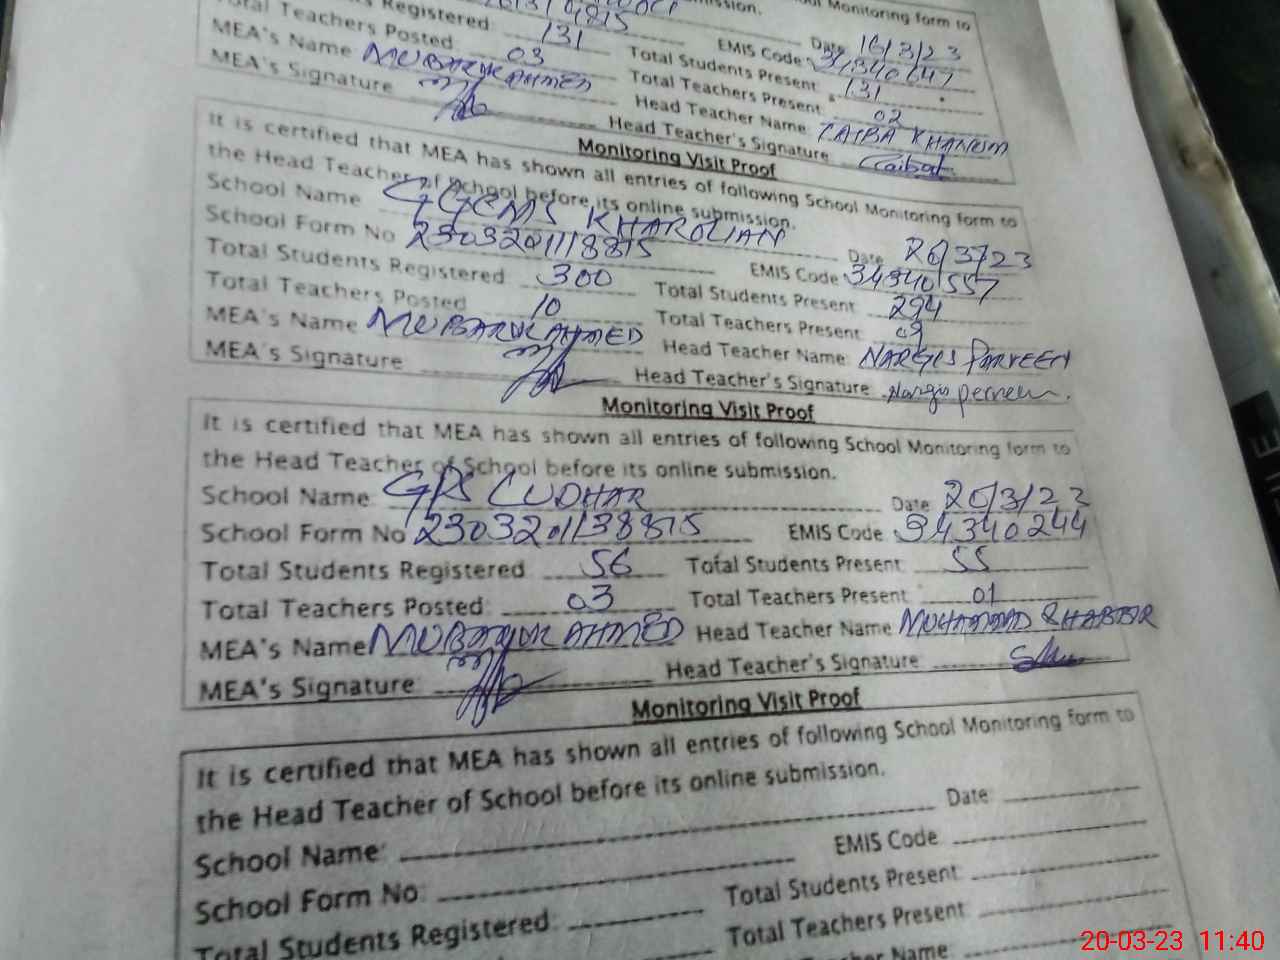 School Monitoring form to
Date 16/3/23
Students Registered 131 EMIS Code 34340647
Total Teachers Posted: 03 Total Students Present 131
MEA's Name MUBARUK AHMED Total Teachers Present 02
MEA's Signature Head Teacher Name: TAIBA KHANUM
Head Teacher's Signature
Monitoring Visit Proof
It is certified that MEA has shown all entries of following School Monitoring form to
the Head Teacher of School before its online submission.
School Name GGEMS KHAROLIAN Date 20/3/23
School Form No 2303201118815 EMIS Code 34340557
Total Students Registered 300 Total Students Present 294
Total Teachers Posted 10 Total Teachers Present 09
MEA's Name MUBARUK AHMED Head Teacher Name: NARGIS PARVEEN
MEA's Signature Head Teacher's Signature Nargis perveen.
Monitoring Visit Proof
It is certified that MEA has shown all entries of following School Monitoring form to
the Head Teacher of School before its online submission.
School Name: GPS LUDHAR Date 20/3/23
School Form No 2303201138815 EMIS Code 34340244
Total Students Registered 56 Total Students Present 55
Total Teachers Posted: 03 Total Teachers Present 01
MEA's Name MUBARUK AHMED Head Teacher Name MUHAMMAD SHABBIR
MEA's Signature Head Teacher's Signature
Monitoring Visit Proof
It is certified that MEA has shown all entries of following School Monitoring form to
the Head Teacher of School before its online submission.
School Name: Date
School Form No: EMIS Code
Total Students Registered: Total Students Present:
Total Teachers Present
Name
20-03-23 11:40